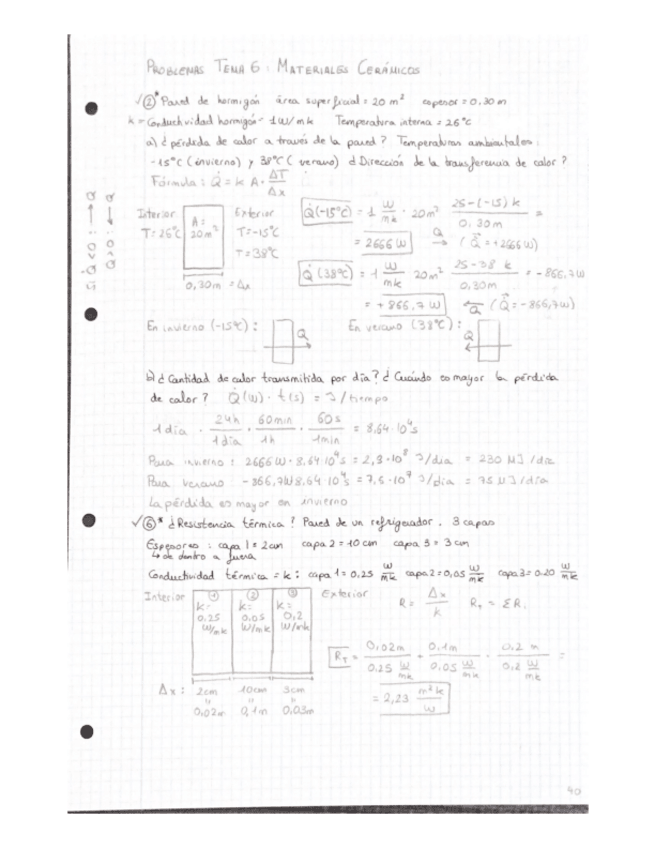 PROBLEMAS TEMA 6: MATERIALES CERÁMICOS
✓②* Pared de hormigón área superficial = 20 m² espesor = 0,30 m
k = Conductividad hormigón = 1 W/mk Temperatura interna = 26ºC
a) ¿pérdida de calor a través de la pared? Temperaturas ambientales:
-15ºC (invierno) y 38ºC (verano) ¿Dirección de la transferencia de calor?
Fórmula: Q̇ = k A · ΔT/Δx
Interior T = 26ºC
A = 20 m²
Exterior T = -15ºC T = 38ºC
0,30 m = Δx
Q̇(-15ºC) = 1 W/mk · 20 m² 25-(-15) k / 0.30m =
= 2666 W Q → (Q̇ = +2666 W)
Q̇(38ºC) = 1 W/mk 20 m² 25-38 k / 0,30m = -866,7 W
= +866,7 W ← Q (Q̇ = -866,7 W)
En invierno (-15ºC): Q
En verano (38ºC): Q
b) ¿Cantidad de calor transmitida por día? ¿Cuándo es mayor la pérdida
de calor? Q̇(W) · t(s) = J/tiempo
1 día · 24h/1día · 60min/1h · 60s/1min = 8,64·10⁴ s
Para invierno: 2666 W · 8,64·10⁴ s = 2,3·10⁸ J/día = 230 MJ/día
Para verano -866,7W 8,64·10⁴ s = 7,5·10⁷ J/día = 75 MJ/día
La pérdida es mayor en invierno
✓⑥* ¿Resistencia térmica? Pared de un refrigerador. 3 capas
Espesores: capa 1 = 2 cm capa 2 = 10 cm capa 3 = 3 cm
↳ de dentro a fuera
Conductividad térmica = k: capa 1 = 0.25 W/mk capa 2 = 0,05 W/mk capa 3 = 0.20 W/mk
Interior
① k = 0,25 W/mk
② k = 0.05 W/mk
③ k = 0,2 W/mk
Exterior
R = Δx/k R_T = ΣR.
R_T = 0,02m / 0.25 W/mk + 0.1m / 0.05 W/mk + 0,2 m / 0,2 W/mk =
= 2,23 m²k/W
Δx: 2cm 10cm 3cm
0,02m 0,1m 0,03m
40